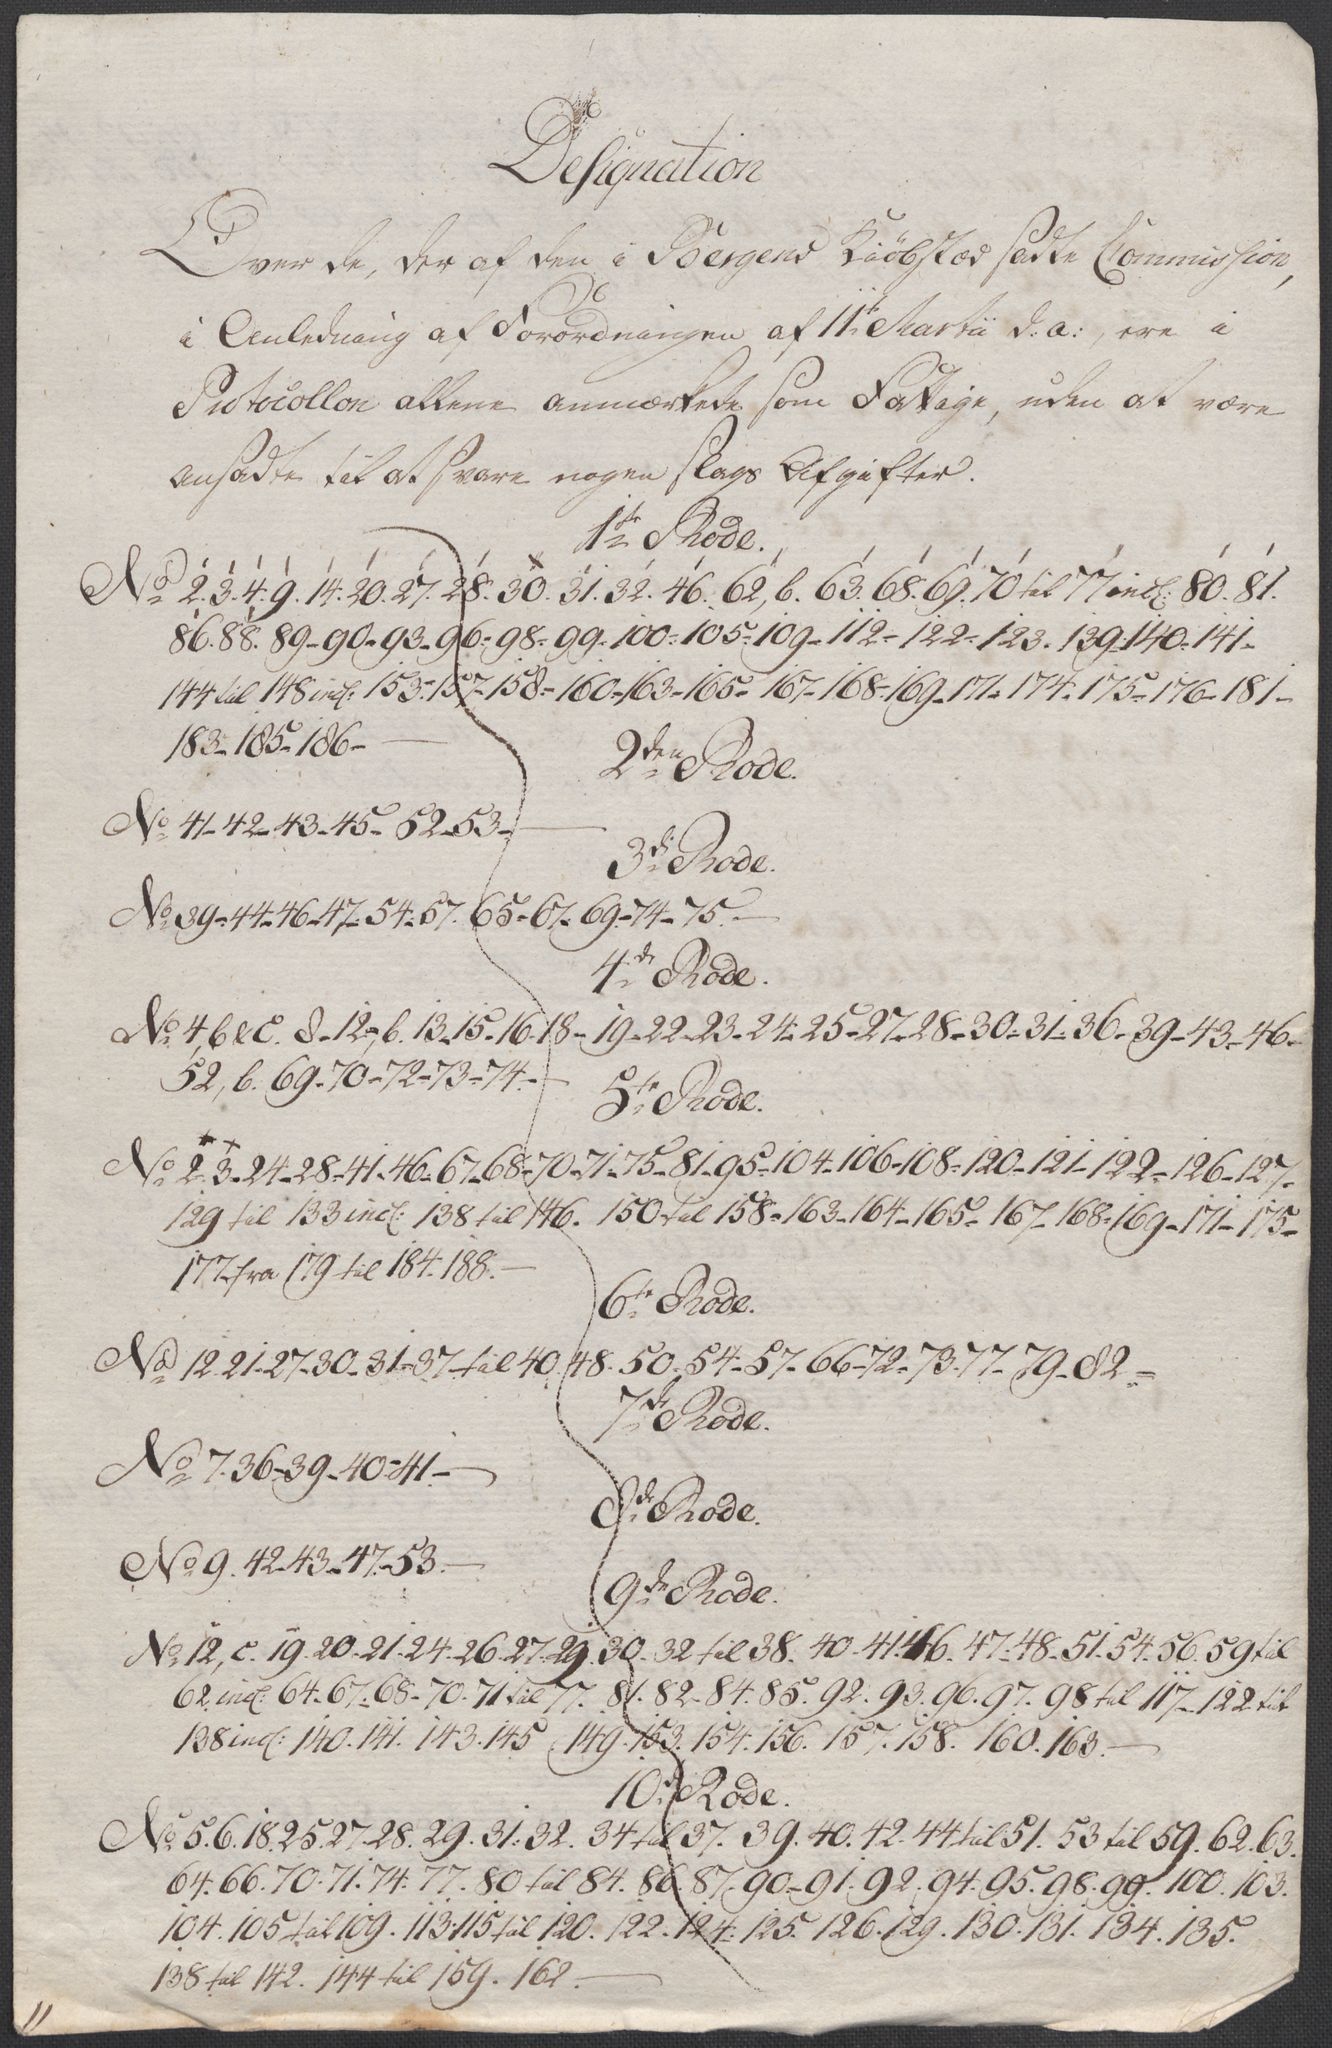 Designation
Over de, der af den i Bergens Kiöbstæd satte Commission,
i Anledning af Forordningen af 11te Martii d: a:, ere i
Protocollen allene anmærkede som Fattige, uden at være
ansatte til at svare nogen slags Afgifter.
1te Rode.
No 2. 3. 4. 9. 14. 20. 27. 28. 30. 31. 32. 46. 62, b. 63. 68. 69. 70 til 77 incl: 80. 81.
86. 88. 89- 90- 93- 96- 98- 99- 100- 105- 109- 112- 122- 123. 139- 140- 141-
144 til 148 incl: 153- 157- 158- 160- 163- 165- 167- 168- 169- 171- 174- 175- 176- 181-
183- 185- 186-
2den Rode.
No 41- 42- 43- 45- 52- 53-
3de Rode.
No 39- 44- 46- 47- 54- 57. 65- 67- 69- 74- 75-
4de Rode.
No 4, b & c. 8- 12, b. 13- 15- 16- 18- 19- 22- 23- 24- 25- 27- 28- 30- 31- 36- 39- 43- 46-
52, b. 69- 70- 72- 73- 74-
5te Rode.
No 2- 3- 24- 28- 41- 46- 67- 68- 70- 71- 75- 81- 95- 104- 106- 108- 120- 121- 122- 126- 127-
129 til 133 incl: 138 til 146. 150 til 158- 163- 164- 165- 167- 168- 169- 171- 175-
177- fra 179 til 184. 188.
6te Rode.
No 12. 21- 27- 30- 31- 37- til 40. 48- 50- 54- 57- 66- 72- 73- 77- 79- 82-
7de Rode.
No 7. 36- 39- 40- 41-
8de Rode.
No 9. 42- 43- 47- 53.
9de Rode.
No 12, c. 19. 20. 21. 24. 26. 27. 29. 30. 32 til 38. 40. 41. 46. 47. 48. 51. 54. 56. 59 til
62 incl: 64. 67. 68. 70. 71 til 77. 81. 82. 84. 85. 92. 93. 96. 97. 98 til 117. 122 til
138 incl: 140. 141. 143. 145 149. 153. 154. 156. 157. 158. 160. 163.
10de Rode.
No 5. 6. 18. 25. 27. 28. 29. 31. 32. 34 til 37. 39. 40. 42. 44 til 51. 53 til 59. 62. 63.
64. 66. 70. 71. 74. 77. 80 til 84. 86. 87. 90- 91. 92. 94. 95. 98. 99. 100. 103.
104. 105 til 109. 113. 115 til 120. 122. 124. 125. 126. 129. 130. 131. 134. 135.
138 til 142. 144 til 159. 162.
11